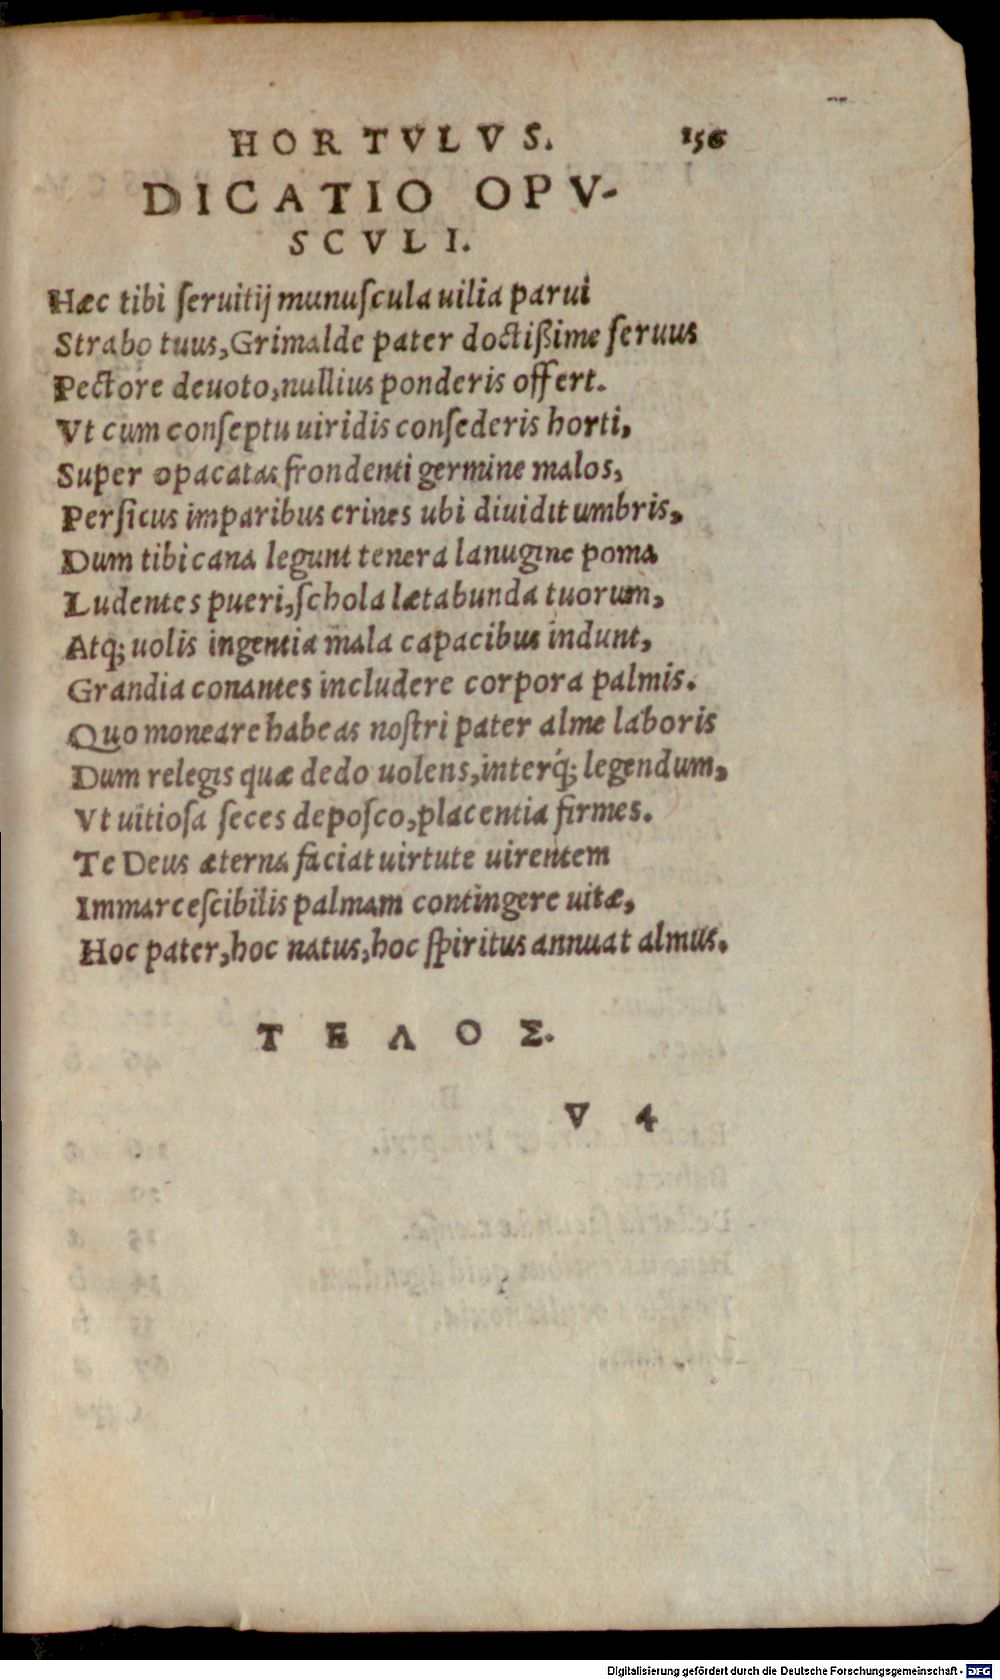 HORTVLVS. 156
DICATIO OPV-
SCVLI.
Hæc tibi ſeruitij munuſcula uilia parui
Strabo tuus, Grimalde pater doctißime ſeruus
Pectore deuoto, nullius ponderis offert.
Vt cum conſeptu uiridis conſederis horti,
Super opacatas frondenti germine malos,
Perſicus imparibus crines ubi diuidit umbris,
Dum tibi cana legunt tenera lanugine poma
Ludentes pueri, ſchola lætabunda tuorum,
Atq; uolis ingentia mala capacibus indunt,
Grandia conantes includere corpora palmis.
Quo moneare habeas noſtri pater alme laboris
Dum relegis quæ dedo uolens, interq́; legendum,
Vt uitioſa ſeces depoſco, placentia firmes.
Te Deus æterna faciat uirtute uirentem
Immarceſcibilis palmam contingere uitæ,
Hoc pater, hoc natus, hoc ſpiritus annuat almus.
ΤΕΛΟΣ.
V 4
Digitalisierung gefördert durch die Deutsche Forschungsgemeinschaft - DFG